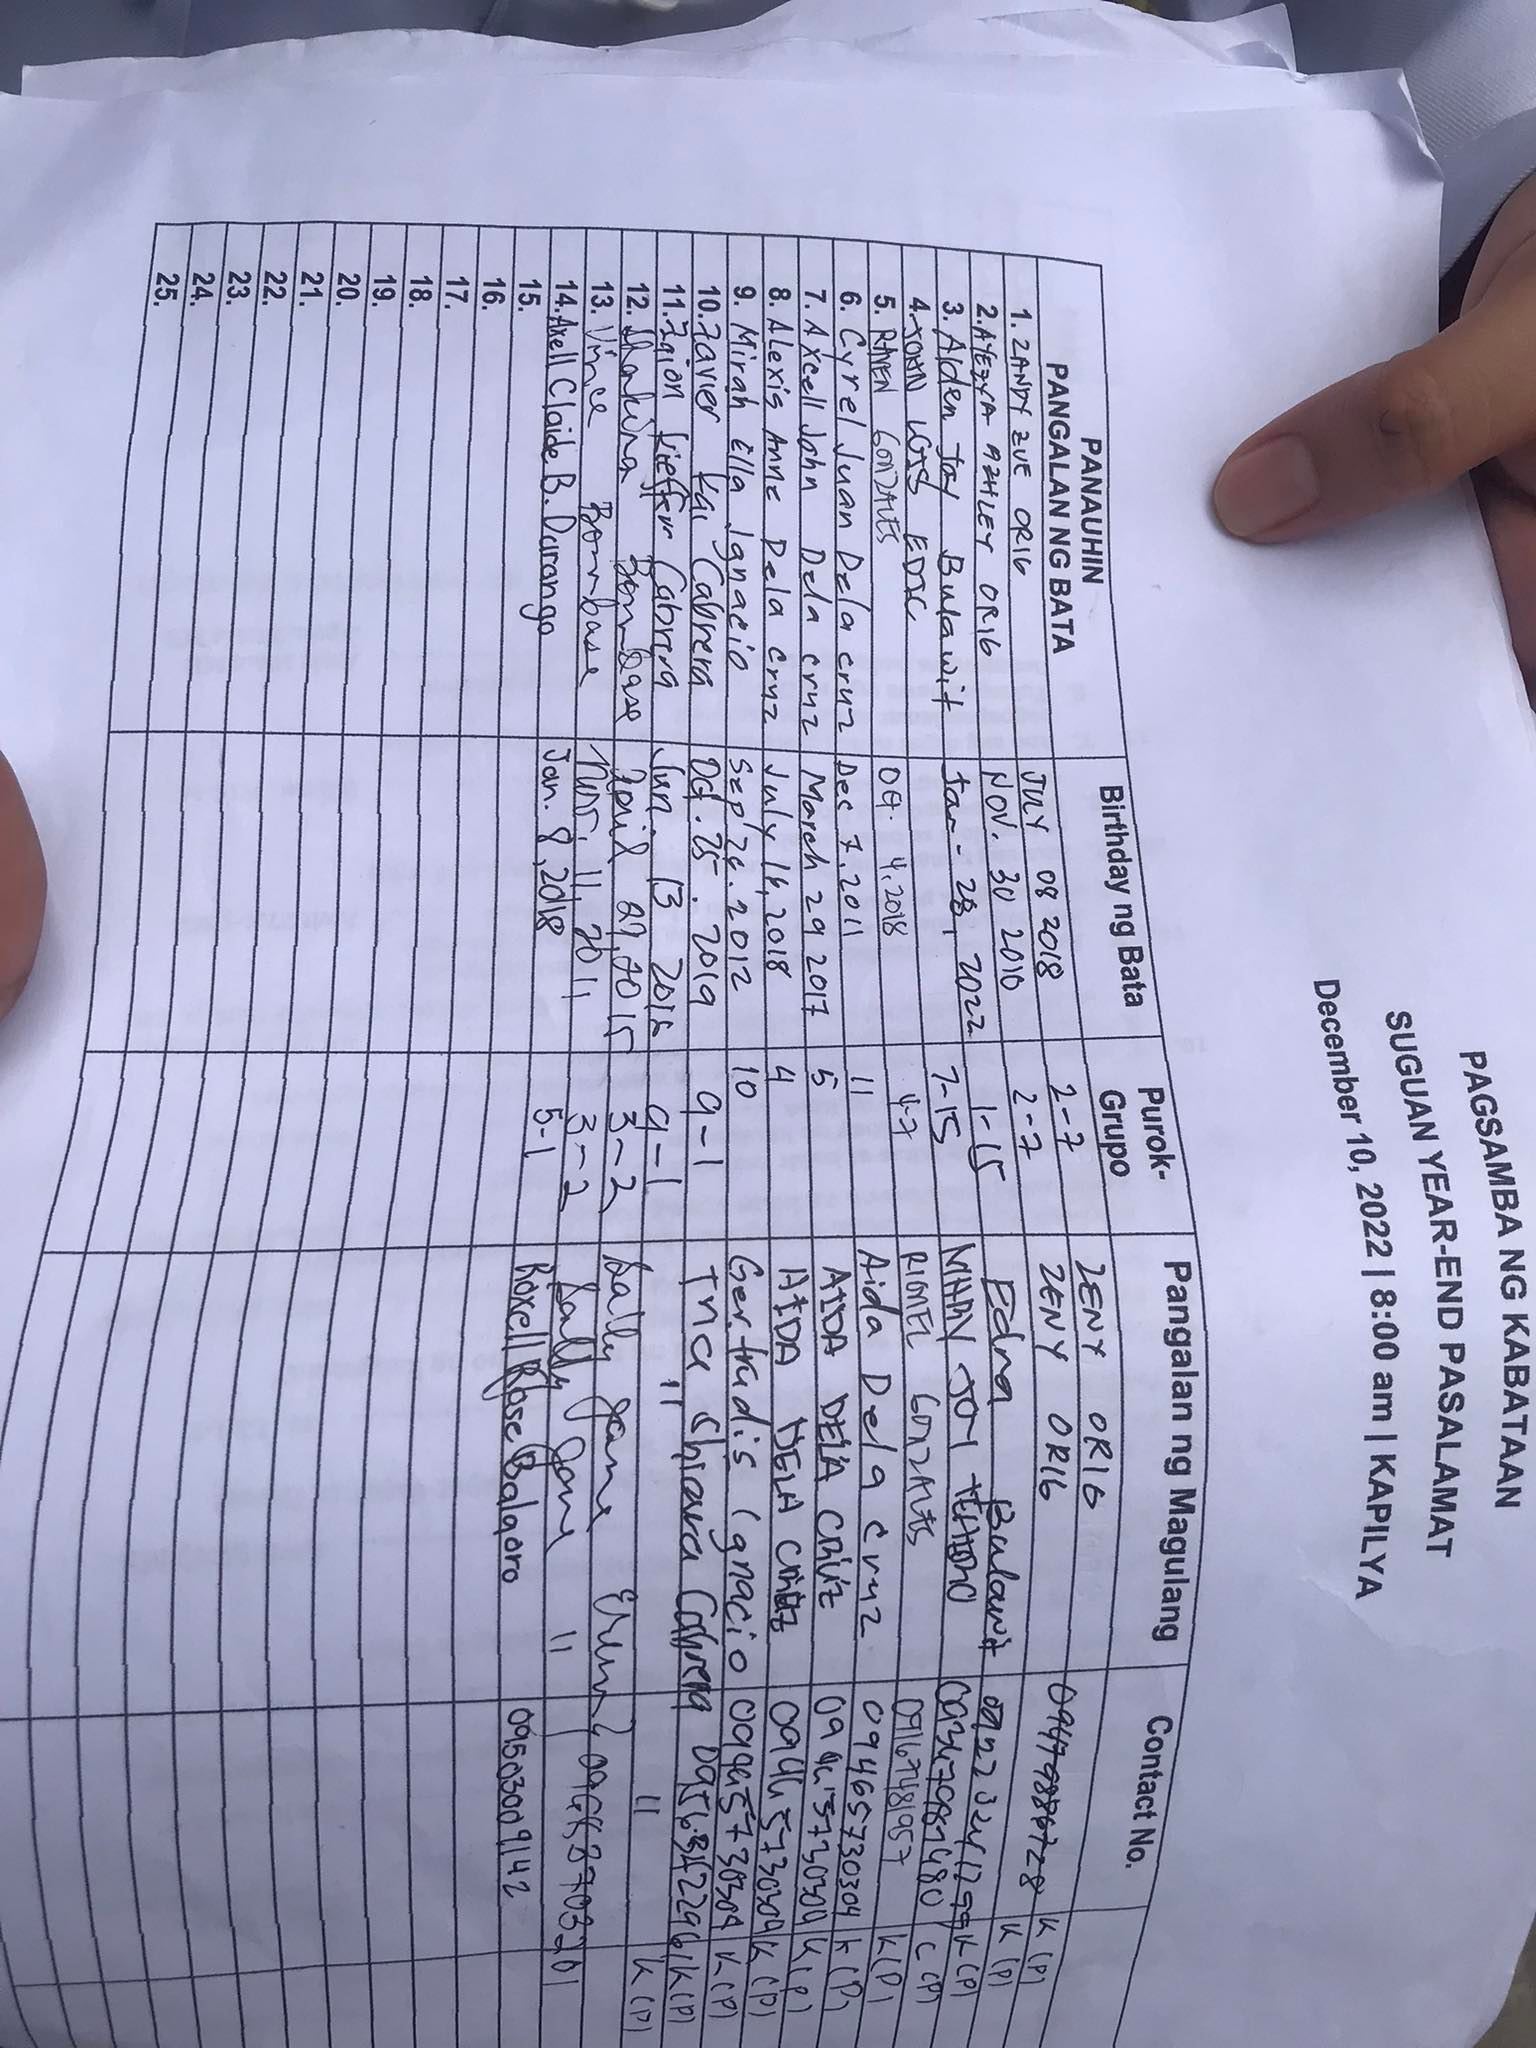 PAGSAMBA NG KABATAAN
SUGUAN YEAR-END PASALAMAT
December 10, 2022 | 8:00 am | KAPILYA
PANAUHIN PANGALAN NG BATA Birthday ng Bata Purok-Grupo Pangalan ng Magulang Contact No.
1. ZANDY ZUE ORIG JULY 08 2018 2-7 ZENY ORIG K (P)
2. AYEZYA AZHLEY ORIG NOV. 30 2010 2-7 ZENY ORIG K (P)
3. Aiden Jay Bulawit Jan - 28, 2022 1-15 Edna Bulawit K (P)
4. JOHN LOIS EDIC 7-15 MARY JOY C (P)
5. RAVEN GONZALES Oct. 4, 2018 4-7 RIONEL GONZALES 09167481957 K (P)
6. Cyrel Juan Dela cruz Dec 7, 2011 11 Aida Dela cruz 09465730304 K (P)
7. Axcell John Dela cruz March 29 2017 5 AIDA DELA CRUZ 09465730304 K (P)
8. Alexis Anne Dela cruz July 16, 2018 4 AIDA DELA CRUZ 09465730304 K (P)
9. Mirah Ella Ignacio Sep 26. 2012 10 Gertrudis Ignacio 09465730304 K (P)
10. Zavier Kai Cabrera Oct. 25. 2019 9-1 Shiara Cabrera K (P)
11. Zaion Kieffer Cabrera Jun. 13 9-1 " " K (P)
12. Shakira Bombase April 27, 2015 3-2 Sally Jane
13. Vince Bombase Nov. 11, 2011 3-2 Sally Jane "
14. Axell Claide B. Durango Jan. 8, 2018 5-1 Roxell Rose Balaoro 09503009142
15.
16.
17.
18.
19.
20.
21.
22.
23.
24.
25.